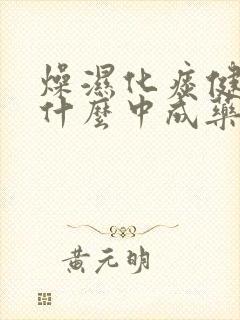 燥濕化痰健
什麼中成藥
黃元明